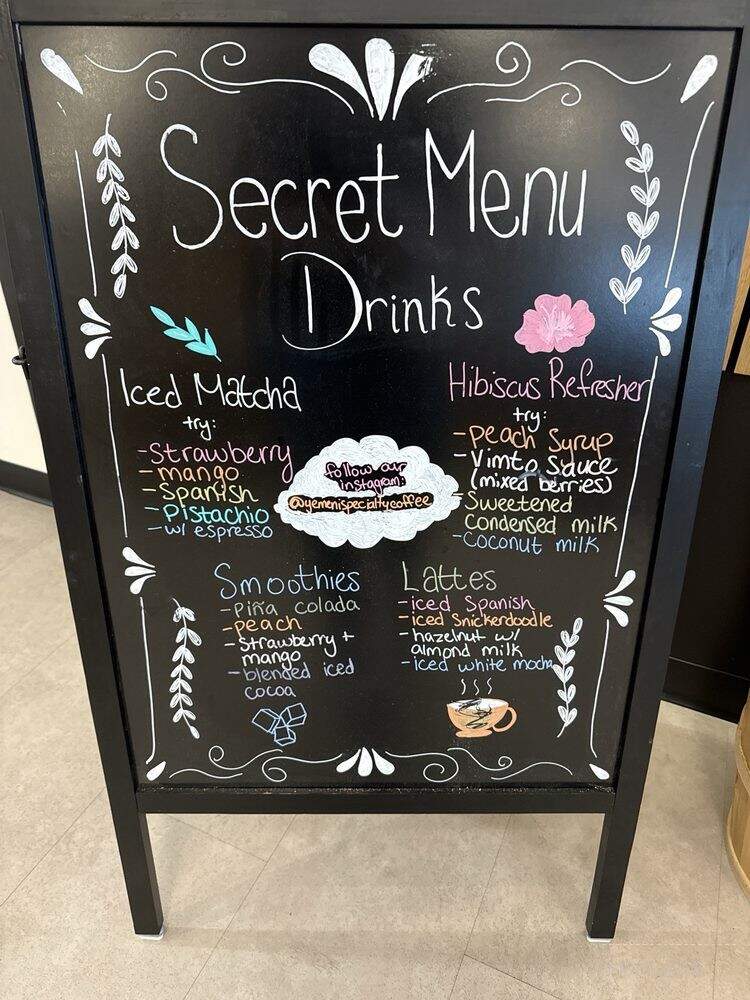 Secret Menu
Drinks
Iced Matcha
try:
-Strawberry
-mango
-Spanish
-Pistachio
-w/ espresso
Hibiscus Refresher
try:
-Peach Syrup
-Vimto Sauce
(mixed berries)
-Sweetened
condensed milk
-coconut milk
follow our
instagram:
@yemenispecialtycoffee
Smoothies
-Piña colada
-Peach
-Strawberry +
mango
-blended iced
cocoa
Lattes
-iced Spanish
-iced Snickerdoodle
-hazelnut w/
almond milk
-iced white mocha